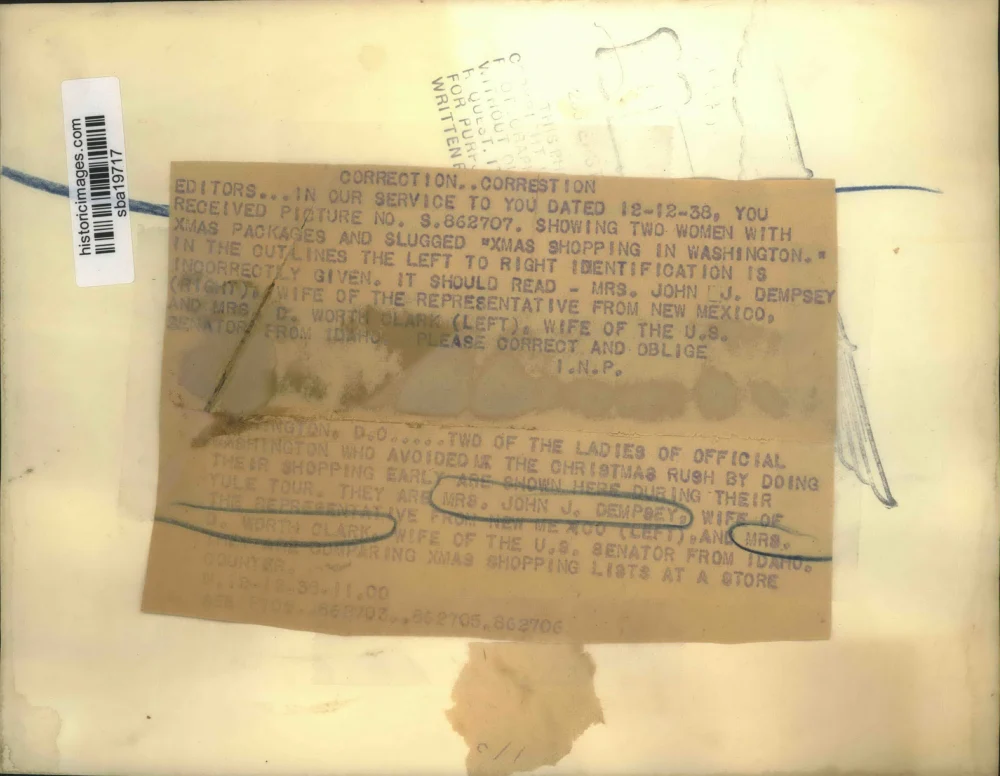 historicimages.com
sba19717
FOR PURP
WRITTEN
CORRECTION..CORRESTION
EDITORS...IN OUR SERVICE TO YOU DATED 12-12-38, YOU
RECEIVED PICTURE NO. S.862707. SHOWING TWO WOMEN WITH
XMAS PACKAGES AND SLUGGED "XMAS SHOPPING IN WASHINGTON."
IN THE CUTLINES THE LEFT TO RIGHT IDENTIFICATION IS
INCORRECTLY GIVEN. IT SHOULD READ - MRS. JOHN J. DEMPSEY
(RIGHT), WIFE OF THE REPRESENTATIVE FROM NEW MEXICO,
AND MRS. D. WORTH CLARK (LEFT), WIFE OF THE U.S.
SENATOR FROM IDAHO. PLEASE CORRECT AND OBLIGE
I.N.P.
D.C.....TWO OF THE LADIES OF OFFICIAL
WASHINGTON WHO AVOIDED THE CHRISTMAS RUSH BY DOING
THEIR SHOPPING EARLY ARE SHOWN HERE DURING THEIR
YULE TOUR. THEY ARE MRS. JOHN J. DEMPSEY, WIFE OF
THE REPRESENTATIVE FROM NEW MEXICO (LEFT),AND MRS.
D. WORTH CLARK, WIFE OF THE U.S. SENATOR FROM IDAHO.
COMPARING XMAS SHOPPING LISTS AT A STORE
COUNTER.
862705,862706